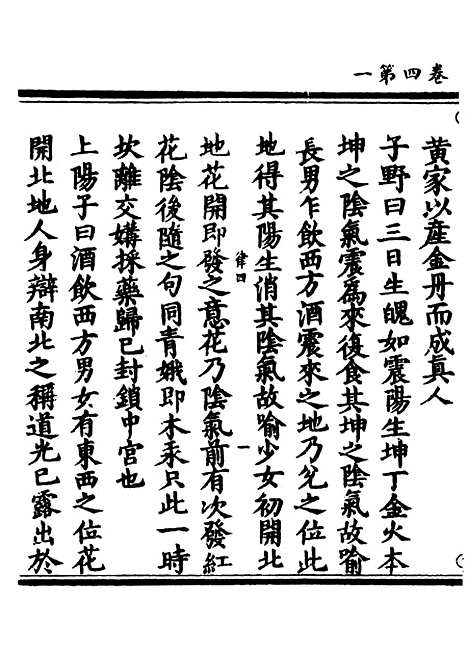 卷四第一
黄家以産金丹而成真人
子野曰三日生魄如震陽生坤丁金火本
坤之陰氣震爲來復食其坤之陰氣故喻
長男乍飲西方酒震來之地乃兌之位此
地得其陽生消其陰氣故喻少女初開北
律四 一
地花開即發之意花乃陰氣前有次發紅
花陰後隨之句同青娥即木汞只此一時
坎離交媾採藥歸已封鎖中宫也
上陽子曰酒飲西方男女有東西之位花
開北地人身辯南北之稱道光已露出於